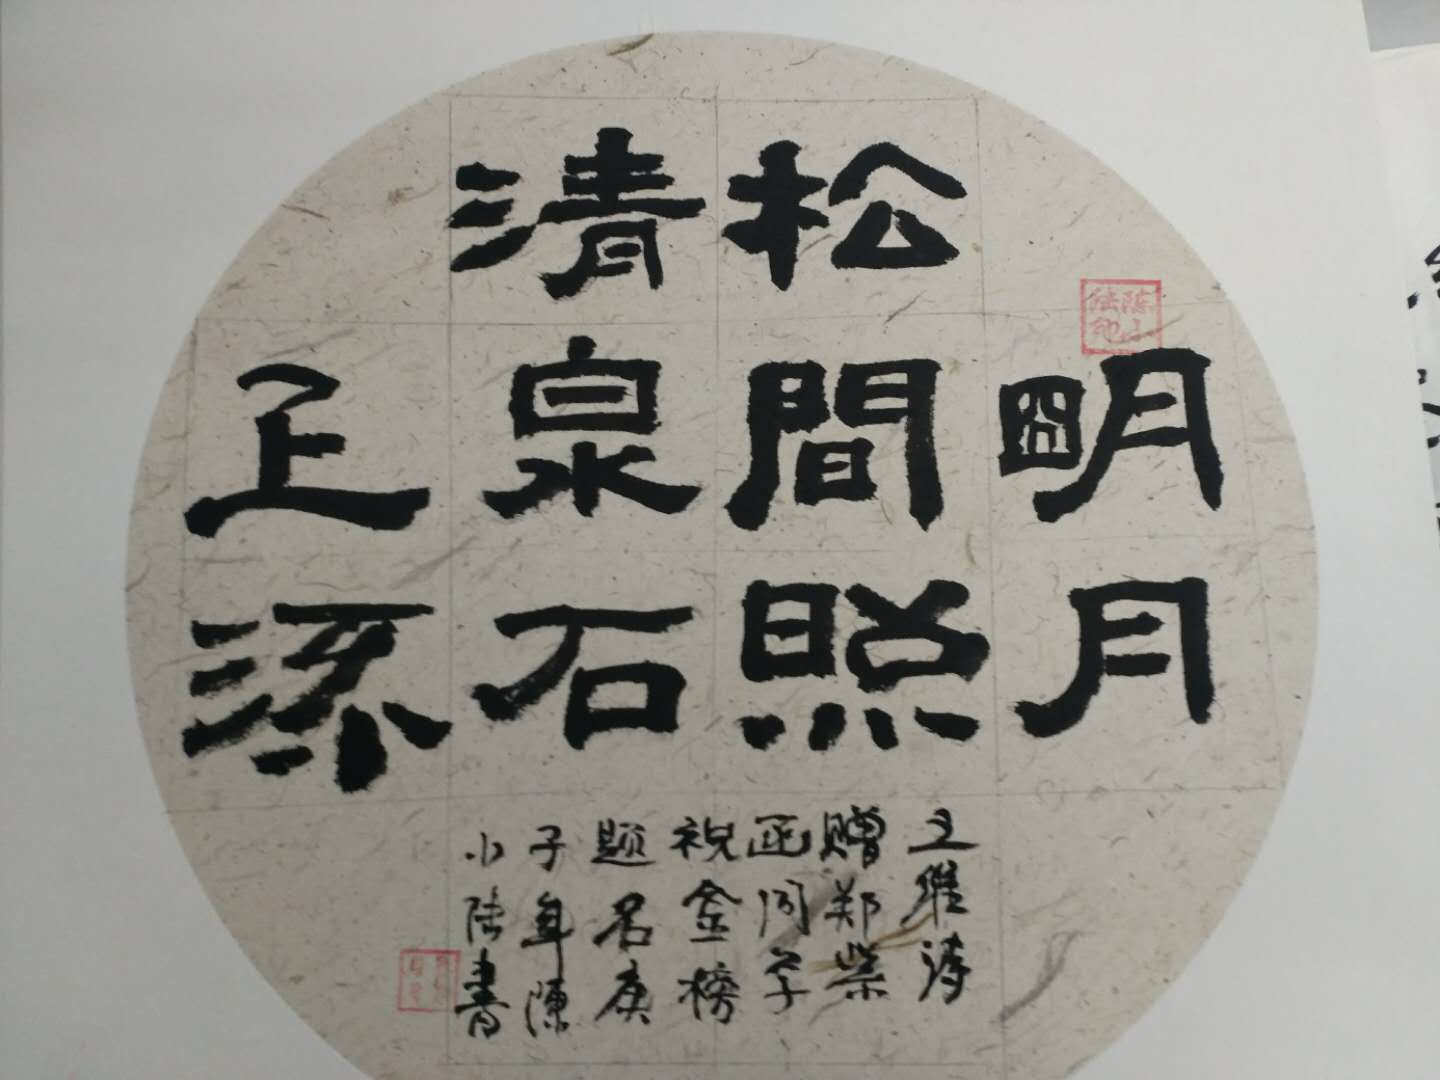 明月
松間照
清泉石
上流
王維詩
贈郑柴
函同学
祝金榜
题名庚
子年陳
小陆書